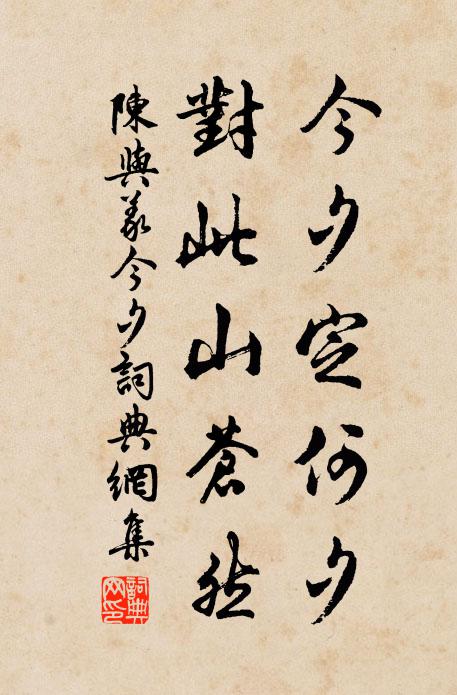 今夕定何夕
對此山蒼然
陳與義今夕詞典網集
詞典
网印